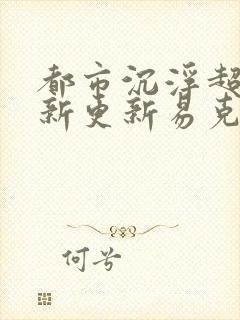 都市沉浮超
新更新易克
何兮